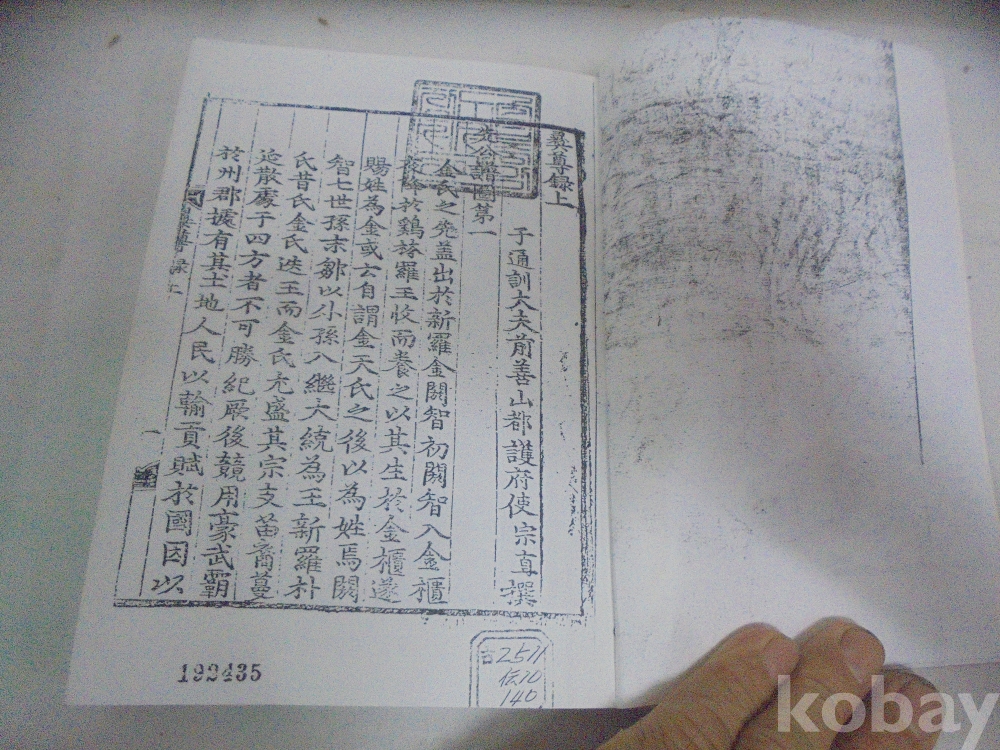 彝尊錄上
子通訓大夫前善山都護府使宗直撰
先公譜圖第一
金氏之先蓋出於新羅金閼智初閼智入金櫃
於鷄林羅王收而養之以其生於金櫃遂
賜姓為金或云自謂金天氏之後以為姓焉閼
智七世孫末鄒以外孫入繼大統為王新羅朴
氏昔氏金氏迭王而金氏尤盛其宗支苗裔蔓
延散處于四方者不可勝紀厥後競用豪武霸
於州郡據有其土地人民以輸貢賦於國因以
彝尊錄上
一
192435
古2511
10
140
kobay